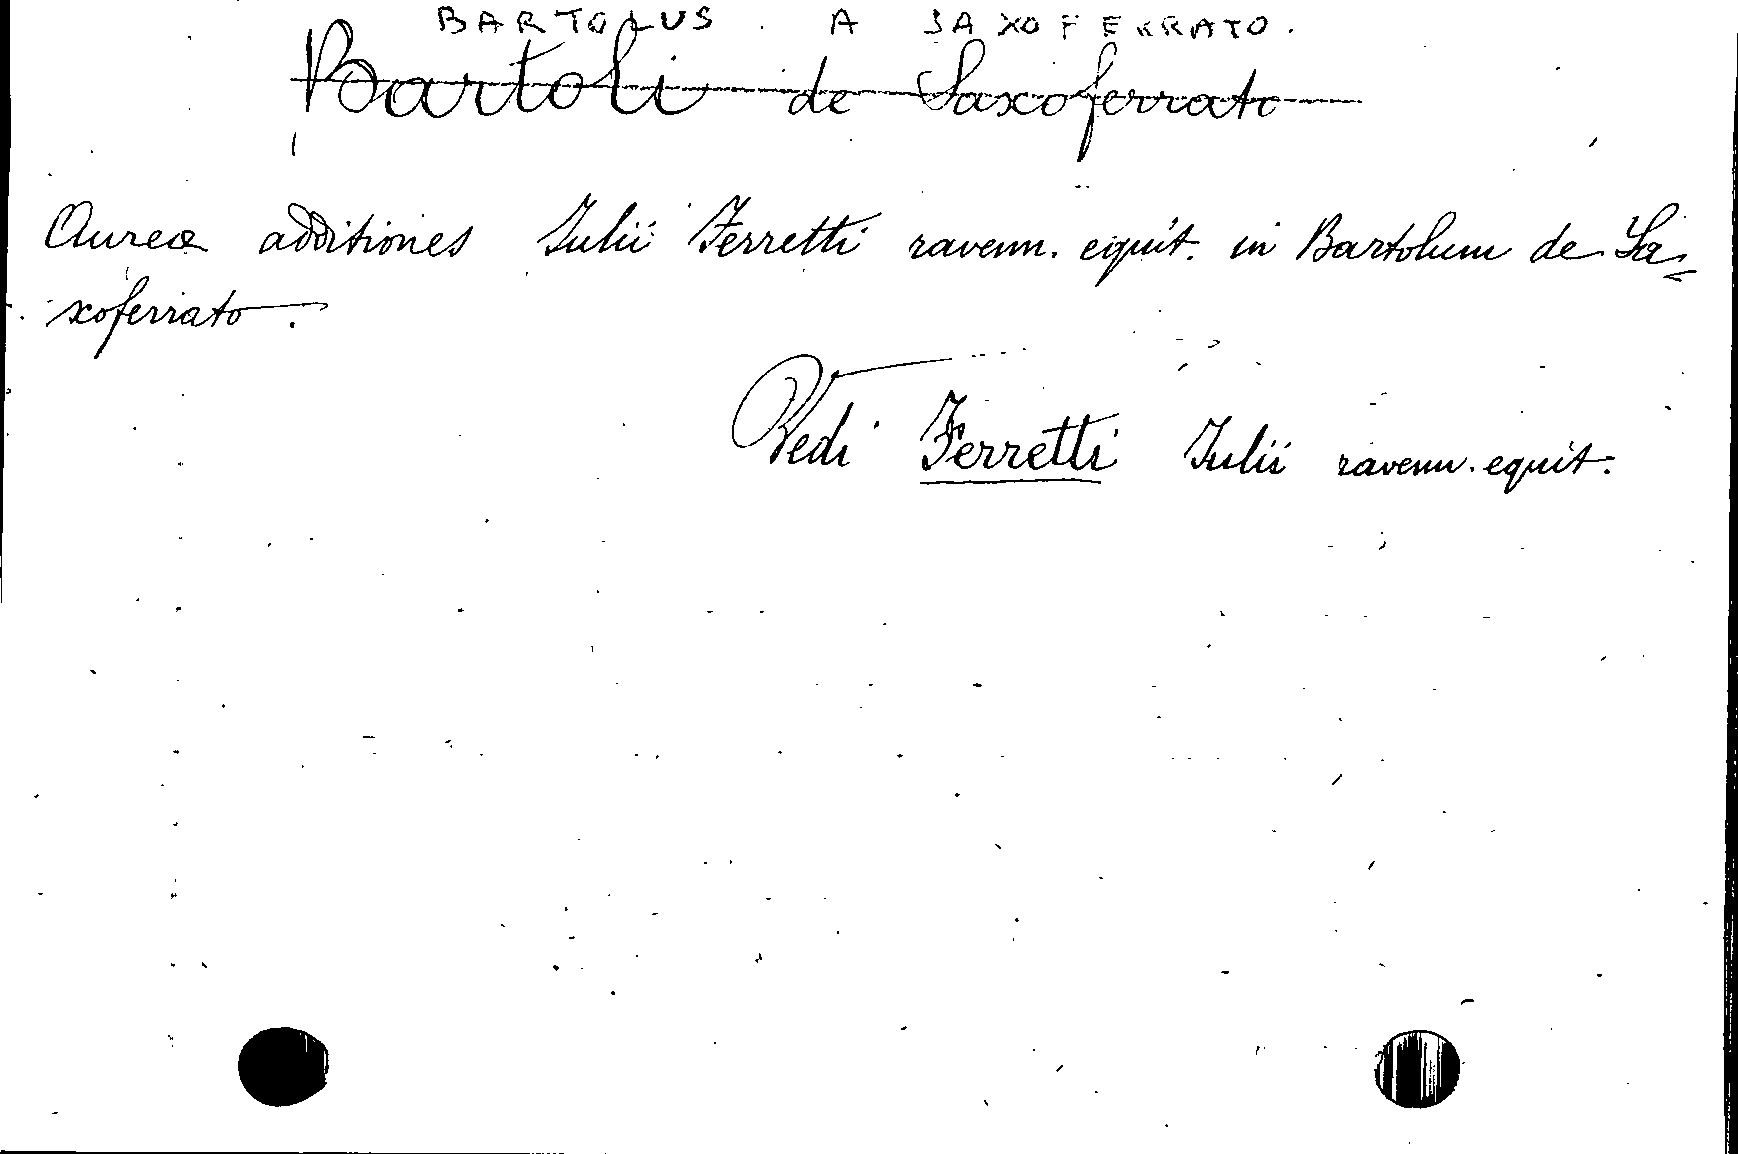 BARTOLUS. A SAXOFERRATO.
Bartoli de Saxoferrato
Aureæ additiones Iulii Ferretti ravenn. equit. in Bartolum de Sa=
xoferrato.
Vedi Ferretti Iulii ravenn. equit.